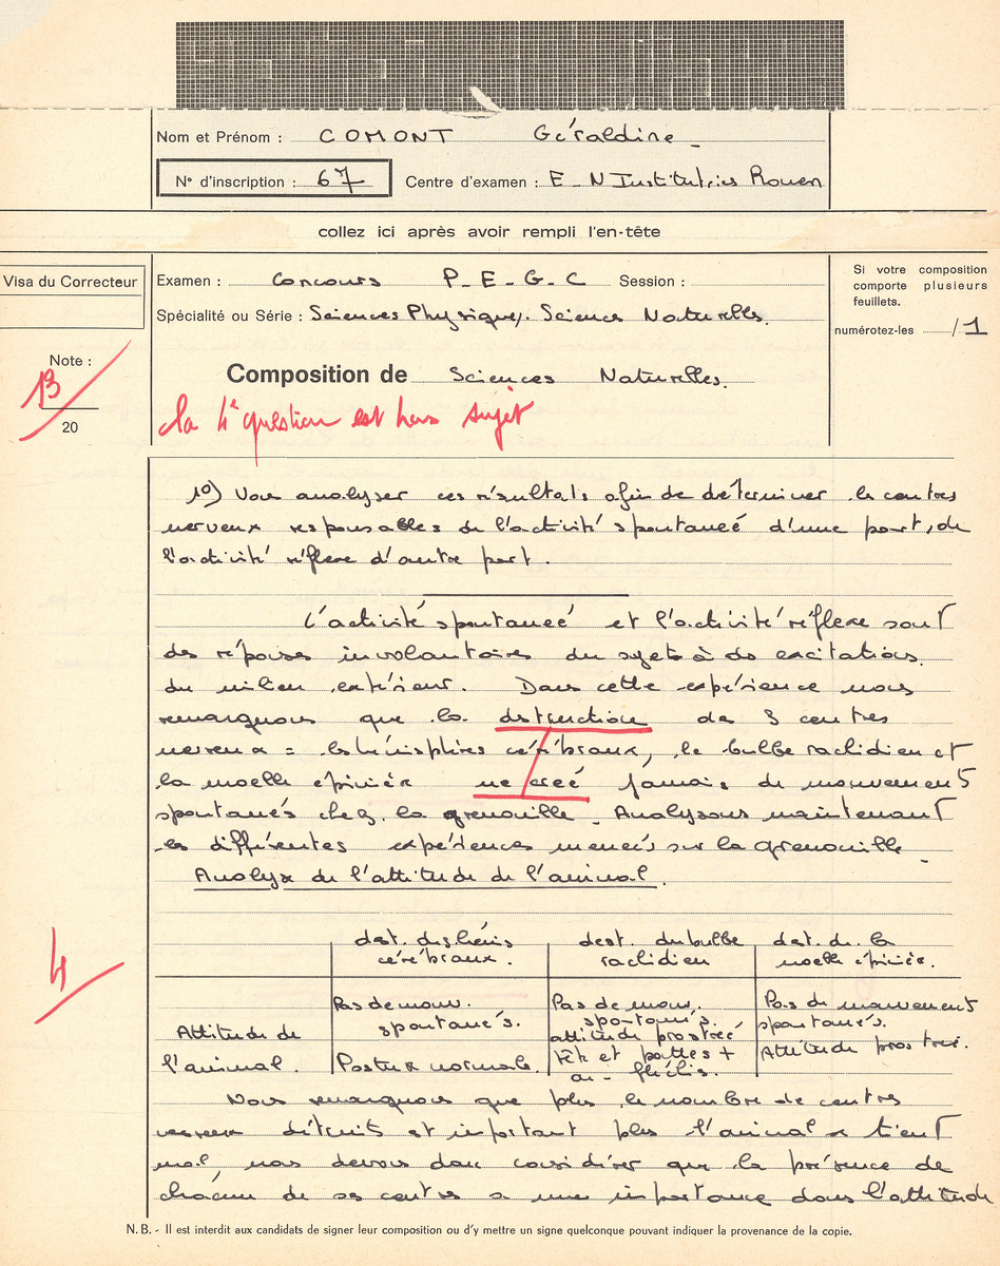 Nom et Prénom : COMONT Géraldine
N° d'inscription : 67 Centre d'examen : E_N Institutrices Rouen
collez ici après avoir rempli l'en-tête
Visa du Correcteur
Examen : Concours P_E_G_C Session :
Spécialité ou Série : Sciences Physiques. Sciences Naturelles.
Si votre composition
comporte plusieurs
feuillets.
numérotez-les /1
Note :
13
20
Composition de Sciences Naturelles.
la 4e question est hors sujet
1°) Vous analyser ces résultats afin de déterminer les centres
nerveux responsables de l'activité spontaneé d'une part, de
l'activité réflexe d'autre part.
L'activité spontaneé et l'activité réflexe sont
des réponses involontaires du sujets à des excitations
du milieu extérieur. Dans cette expérience nous
remarquons que la destruction des 3 centres
nerveux = les hémisphères cérébraux, le bulbe rachidien et
la moelle épinière ne creé jamais de mouvement
spontanés chez la grenouille. Analysons maintenant
les différentes expériences menées sur la grenouille
Analyse de l'attitude de l'animal.
4
dest. des hémis cérébraux.
dest. du bulbe rachidien
dest. de la moelle épinière.
Attitude de l'animal.
Pas de mouv. spontanés.
Posture normale.
Pas de mouv. spontanés.
attitude prostreé
tête et pattes + ou - fléchis.
Pas de mouvement spontanés.
Attitude prostreé.
Nous remarquons que plus le nombre de centres
nerveux détruits est important plus l'animal se tient
mal, nous devons donc considérer que la présence de
chacun de ses centres a une importance dans l'attitude
N. B. - Il est interdit aux candidats de signer leur composition ou d'y mettre un signe quelconque pouvant indiquer la provenance de la copie.